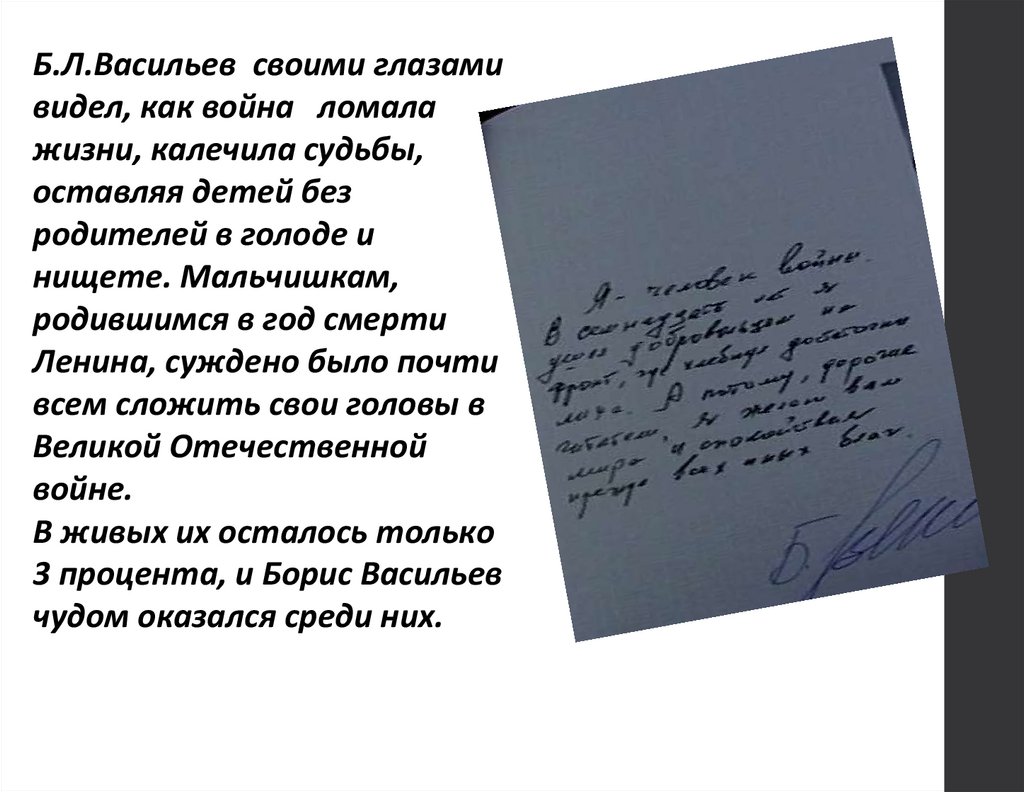 Б.Л.Васильев своими глазами
видел, как война ломала
жизни, калечила судьбы,
оставляя детей без
родителей в голоде и
нищете. Мальчишкам,
родившимся в год смерти
Ленина, суждено было почти
всем сложить свои головы в
Великой Отечественной
войне.
В живых их осталось только
3 процента, и Борис Васильев
чудом оказался среди них.
Я - человек войны.
В семнадцать лет я
ушёл добровольцем на
фронт, где хлебнул достаточно
лиха. А потому, дорогие
читатели, я желаю вам
мира и спокойствия
прежде всех иных благ.
Б.